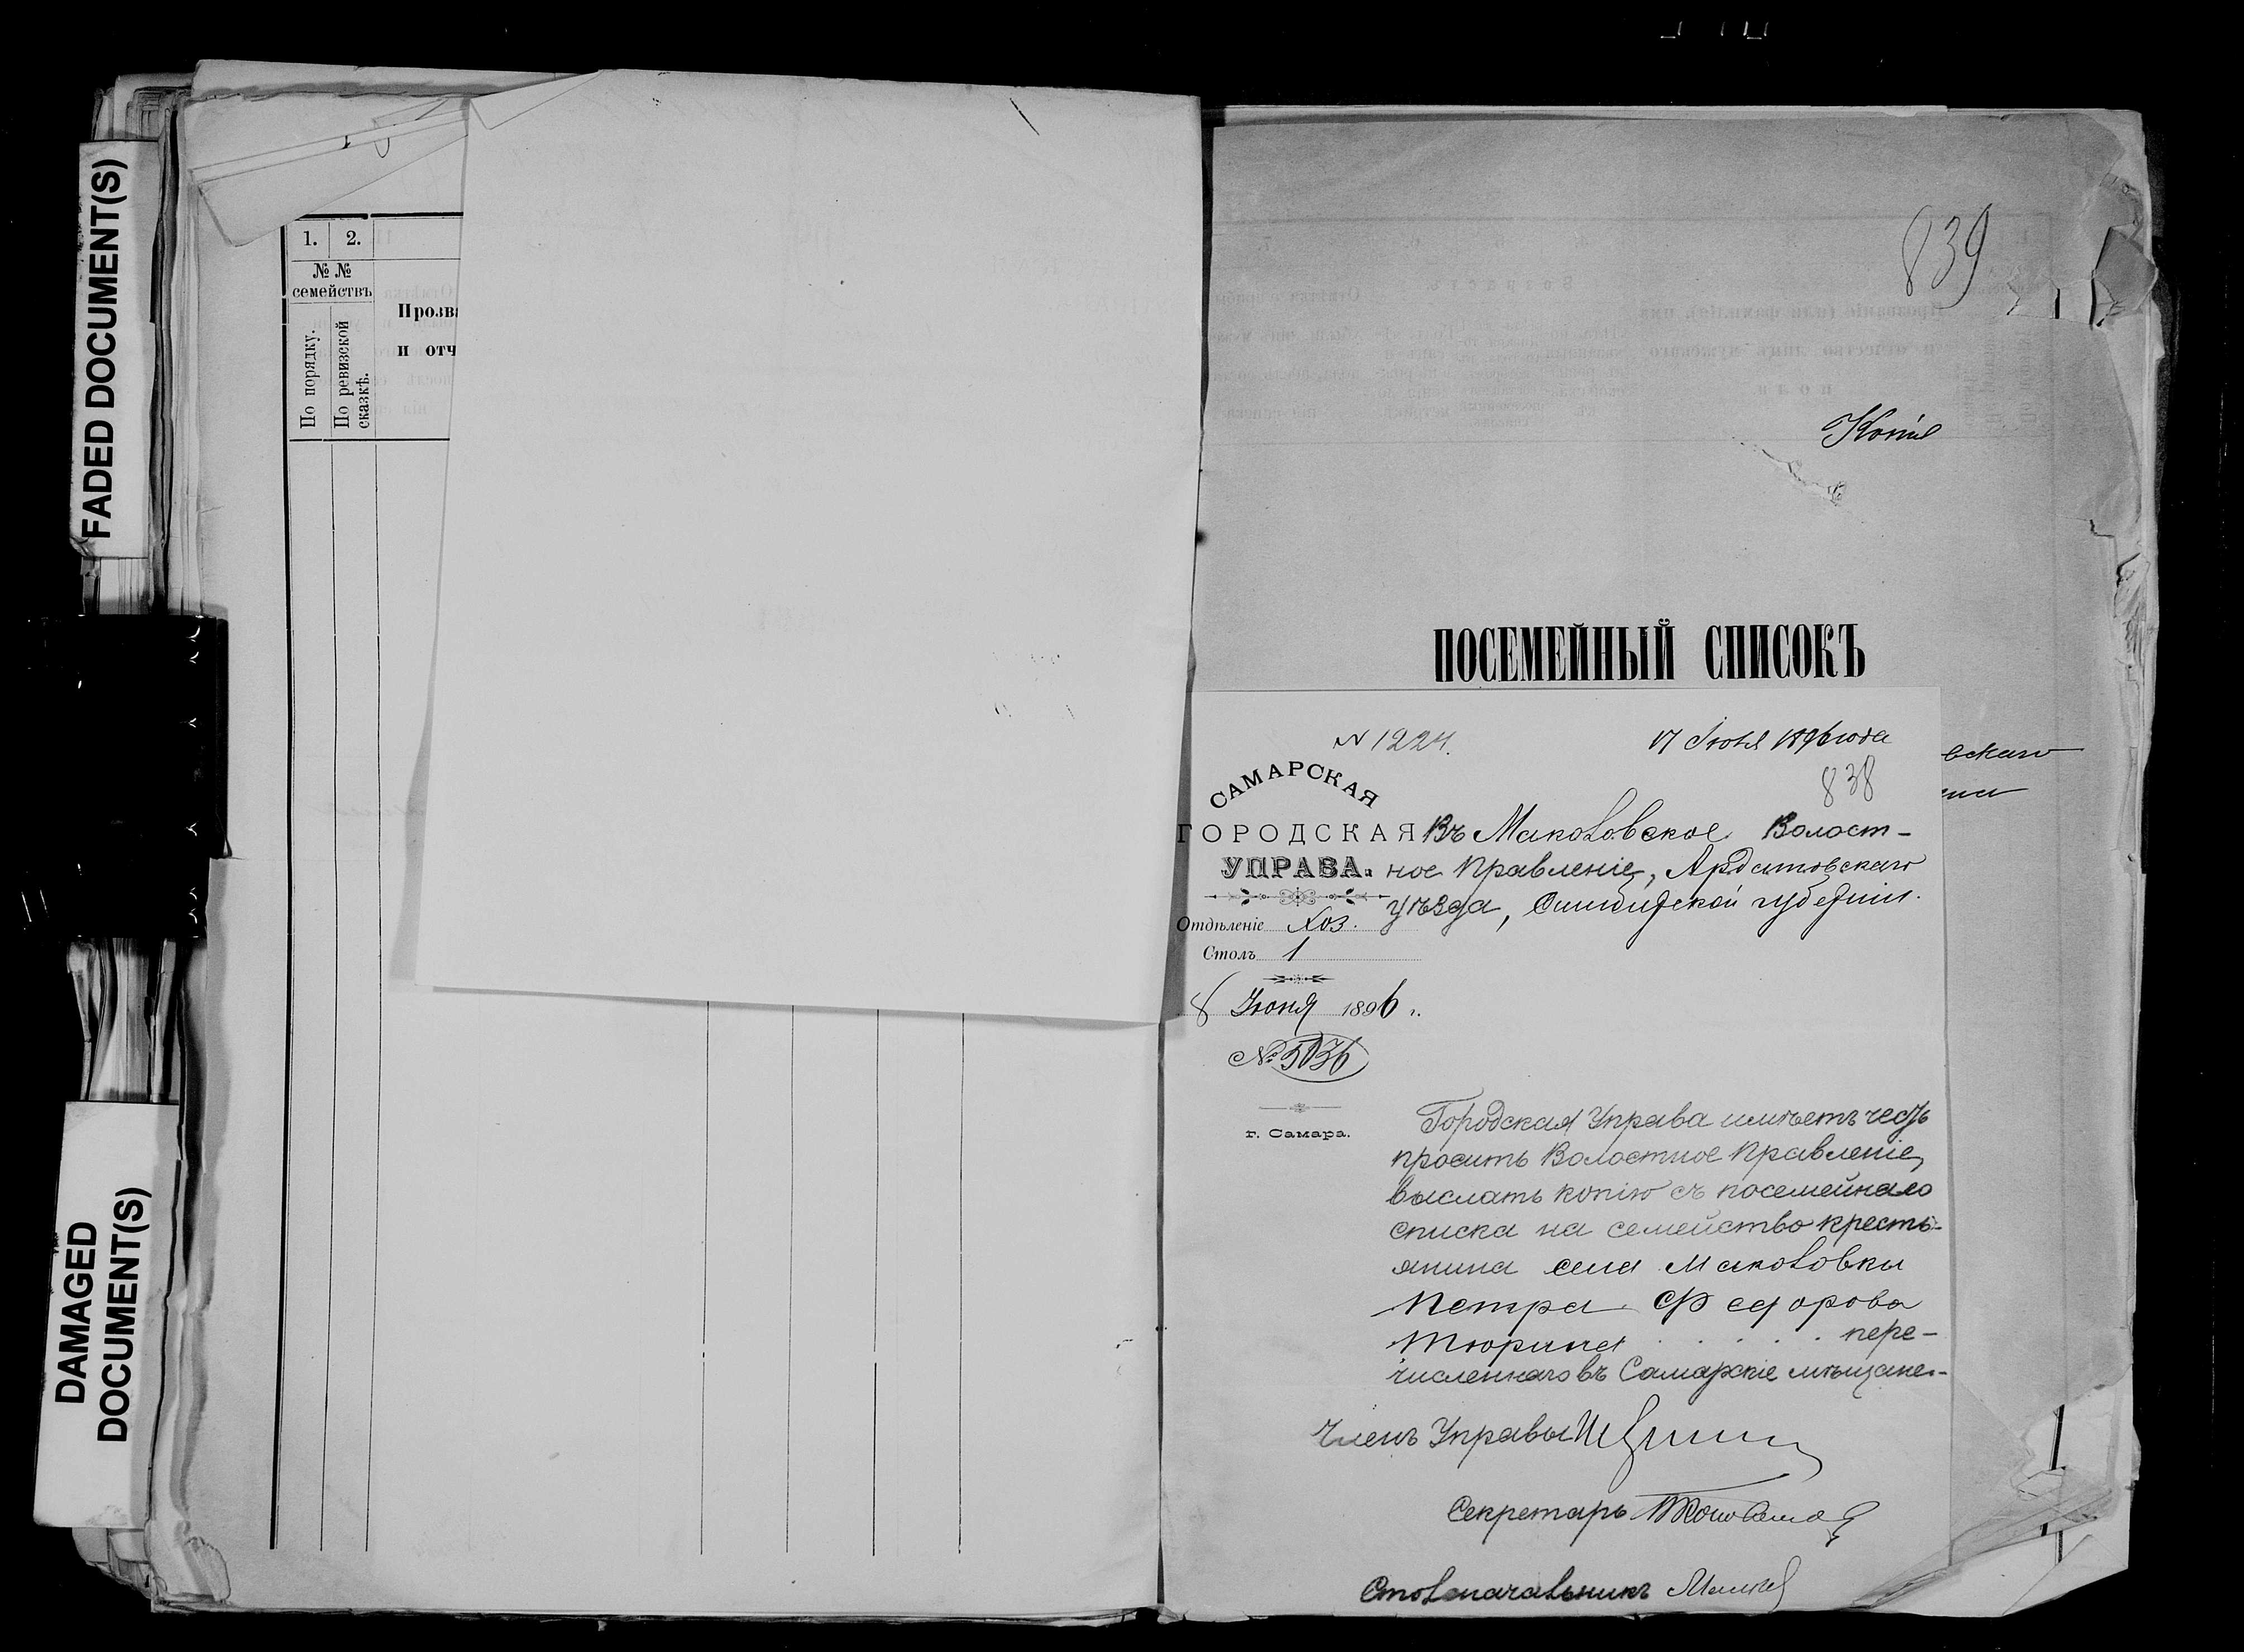 FADED DOCUMENT(S)
DAMAGED
DOCUMENT(S)
1. 2.
№ №
семействъ
По порядку.
По ревизской
сказкѣ.
Прозв
и отч
839
Копія
ПОСЕМЕЙНЫЙ СПИСОКЪ
вскаго
N 1224.
17 Іюня 1896 года
838
САМАРСКАЯ
ГОРОДСКАЯ
УПРАВА.
Отдѣленіе Хоз.
Столъ 1
8 Июня 1896 г.
№ 5036
г. Самара.
Въ Маколовское Волост-
ное Правленіе, Ардатовскаго
уѣзда, Симбирской губерніи.
Городская Управа имѣетъ честь
просить Волостное Правленіе,
выслать копію съ посемейнаго
списка на семейство кресть-
янина села Маколовки
Петра Федорова
Тюрина . . . . . пере-
численнаго въ Самарскіе мѣщане.-
Членъ Управы
Секретарь
Столоначальникъ